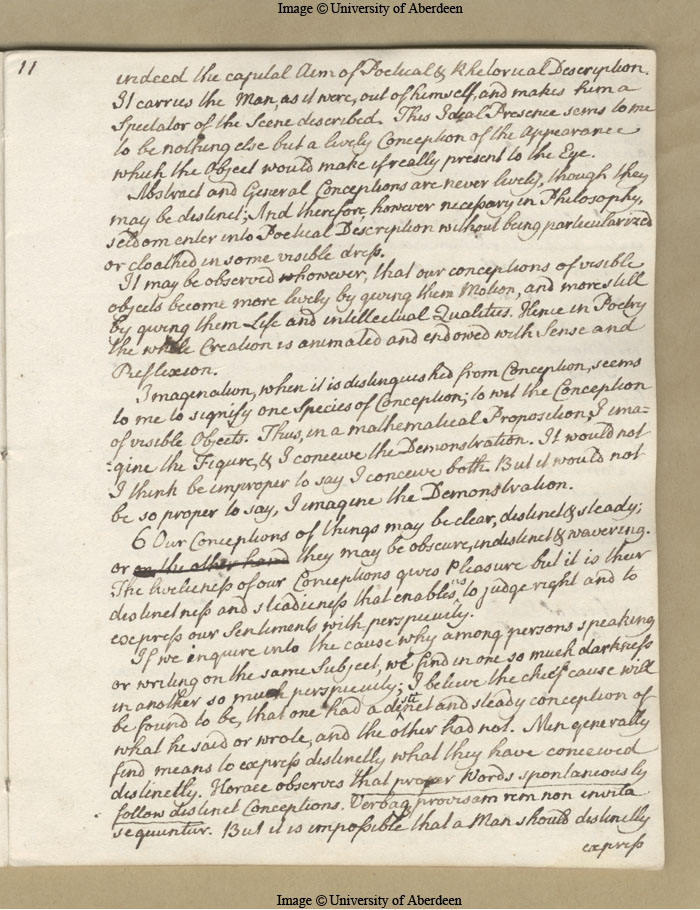 Image © University of Aberdeen
11
indeed the capital Aim of Poetical & Rhetorical Description.
It carries the Man, as it were, out of himself, and makes him a
Spectator of the Scene described. This Ideal Presence sems to me
to be nothing else but a lively Conception of the Appearance
which the Object would make if really present to the Eye.
Abstract and General Conceptions are never lively, though they
may be distinct; And therefore, however necessary in Philosophy,
seldom enter into Poetical Description without being particularized
or cloathed in some visible dress.
It may be observed however, that our conceptions of visible
objects become more lively by giving them Motion, and more still
by giving them Life and intellectual Qualities. Hence in Poetry
the whole Creation is animated and endowed with Sense and
Reflexion.
Imagination, when it is distinguished from Conception, seems
to me to signify one Species of Conception; to wit the Conception
of visible Objects. Thus, in a mathematical Proposition, I ima=
=gine the Figure, & I conceive the Demonstration. It would not
I think be improper to say I conceive both. But it would not
be so proper to say, I imagine the Demonstration.
6 Our Conceptions of things may be clear, distinct & steady;
or on the other hand they may be obscure, indistinct & wavering.
The liveliness of our Conceptions gives Pleasure but it is their
distinctness and steadieness that enables us to judge right and to
express our Sentiments with perspicuity.
If we inquire into the cause why among persons speaking
or writing on the same Subject, we find in one so much darkness
in another so much perspicuity; I believe the chief cause will
be found to be, that one had a distinct and steady conception of
what he said or wrote, and the other had not. Men generally
find means to express distinctly what they have conceived
distinctly. Horace observes that proper Words spontaneously
follow distinct Conceptions. Verbaq provisam rem non invita
sequuntur. But it is impossible that a Man should distinctly
express
Image © University of Aberdeen